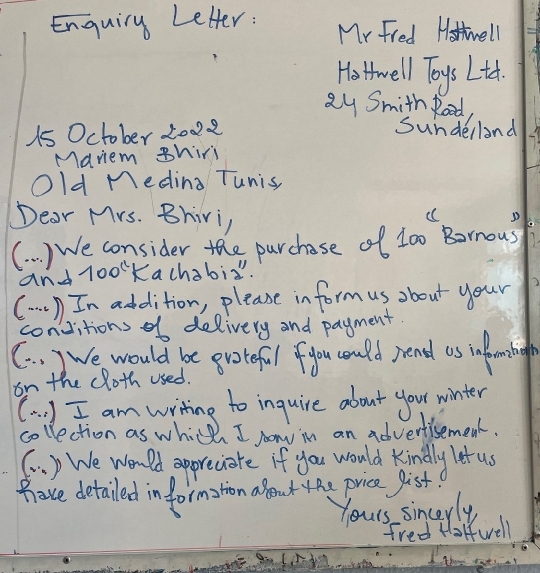 Enquiry Letter:
Mr Fred Hattwell
Hattwell Toys Ltd.
24 Smith Road,
Sunderland
15 October 2022
Mariem Bhiri
Old Medina Tunis
Dear Mrs. Bhiri,
(...) We consider the purchase of 100 "Barnous"
and 100 "Kachabia".
(....) In addition, please inform us about your
conditions of delivery and payment.
(...) We would be grateful if you could send us information
on the cloth used.
(...) I am writing to inquire about your winter
collection as which I saw in an advertisement.
(...) We would appreciate if you would kindly let us
have detailed information about the price list.
Yours sincerly,
Fred Hattwell